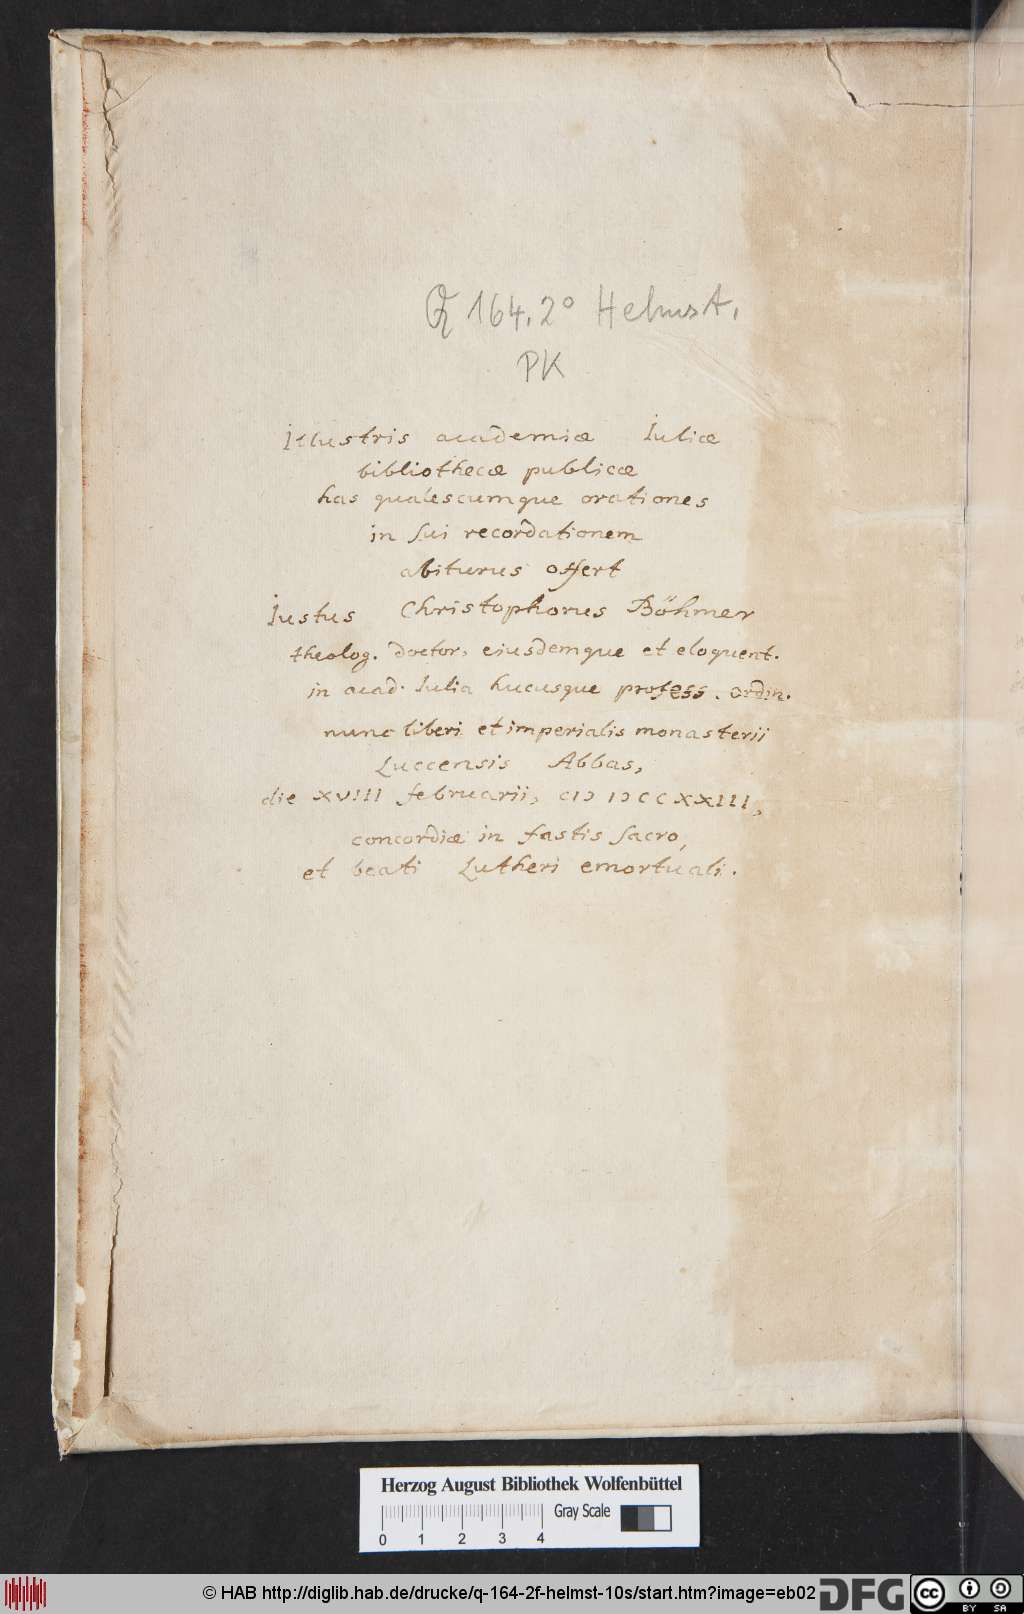 Q 164.2° Helmst.
PK
Illustris academiæ Iuliæ
bibliothecæ publicæ
has qualescumque orationes
in sui recordationem
abiturus offert
Iustus Christophorus Böhmer
theolog. doctor, eiusdemque et eloquent.
in acad. Iulia hucusque profess. ordin.
nunc liberi et imperialis monasterii
Luccensis Abbas,
die XVIII februarii, CIↃ IↃCCXXIII,
concordiæ in fastis sacro,
et beati Lutheri emortuali.
Herzog August Bibliothek Wolfenbüttel
Gray Scale
0 1 2 3 4
© HAB http://diglib.hab.de/drucke/q-164-2f-helmst-10s/start.htm?image=eb02
DFG
cc BY SA